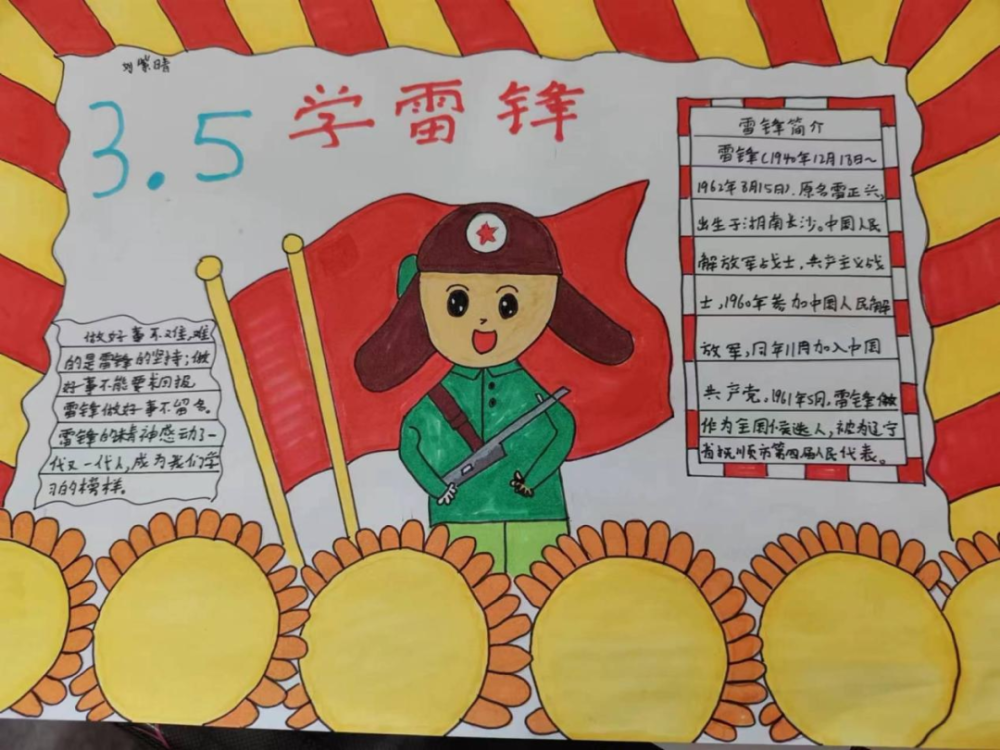 刘紫晴
3.5 学雷锋
雷锋简介
雷锋(1940年12月18日～
1962年8月15日).原名雷正兴,
出生于湖南长沙。中国人民
解放军战士,共产主义战
士,1960年参加中国人民解
放军,同年11月加入中国
共产党,1961年5月,雷锋做
作为全国候选人,被为辽宁
省抚顺市第四届人民代表。
做好事不难,难
的是雷锋的坚持;做
好事不能要求回报
雷锋做好事不留名。
雷锋的精神感动了一
代又一代人,成为我们学
习的榜样。